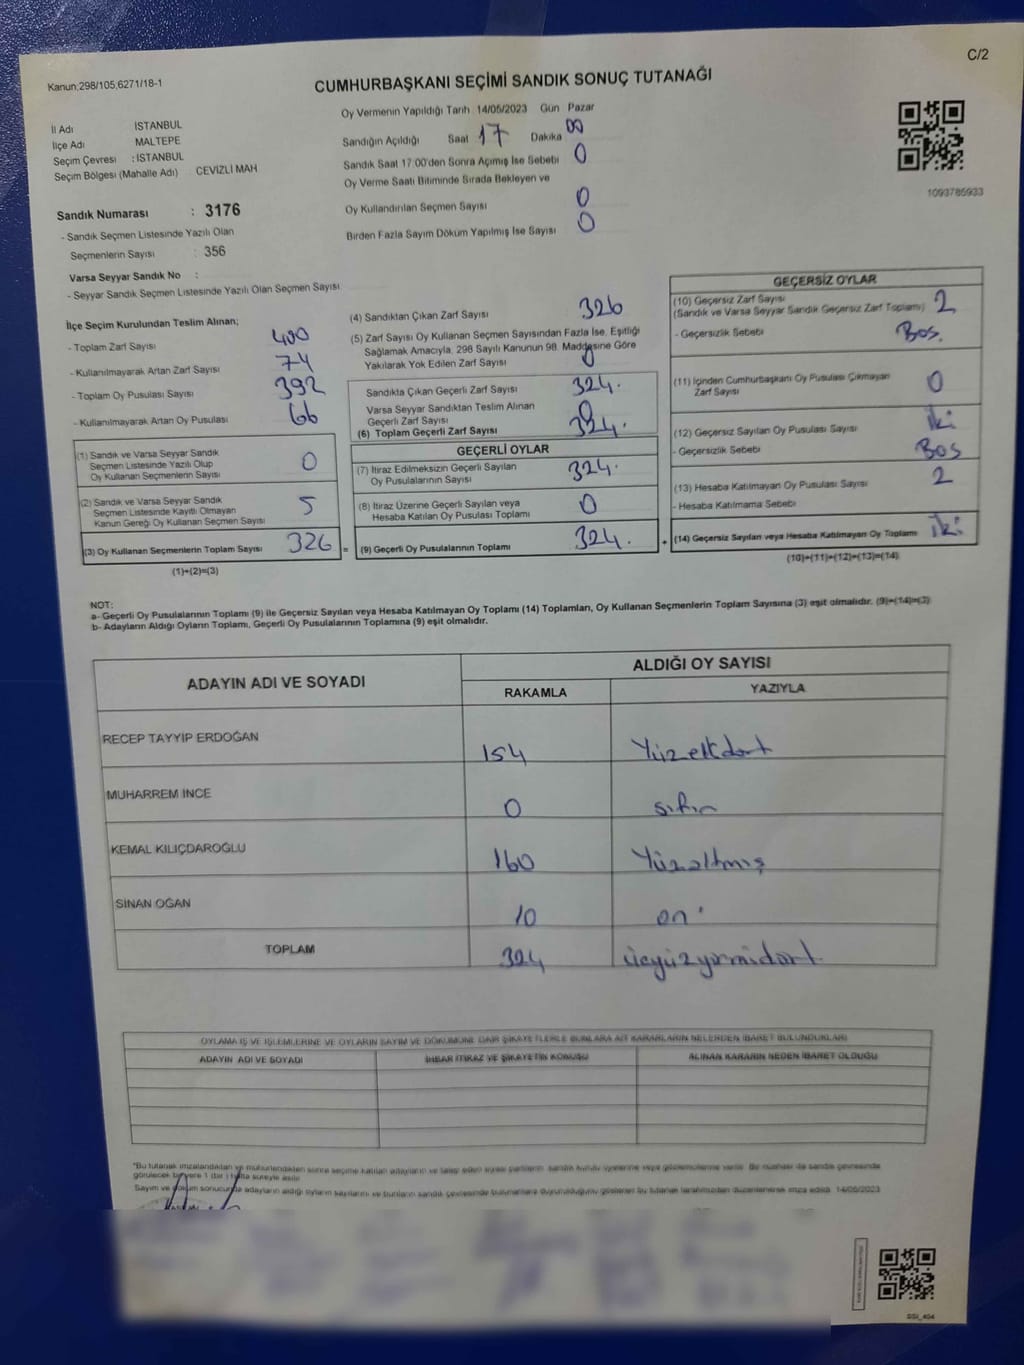 C/2
Kanun;298/105,6271/18-1
CUMHURBAŞKANI SEÇİMİ SANDIK SONUÇ TUTANAĞI
İl Adı İSTANBUL
İlçe Adı MALTEPE
Seçim Çevresi : İSTANBUL
Seçim Bölgesi (Mahalle Adı) CEVİZLİ MAH
Sandık Numarası : 3176
- Sandık Seçmen Listesinde Yazılı Olan
Seçmenlerin Sayısı : 356
Varsa Seyyar Sandık No :
- Seyyar Sandık Seçmen Listesinde Yazılı Olan Seçmen Sayısı
Oy Vermenin Yapıldığı Tarih 14/05/2023 Gün Pazar
Sandığın Açıldığı Saat 17 Dakika 00
Sandık Saat 17:00'den Sonra Açımış İse Sebebi 0
Oy Verme Saati Bitiminde Sırada Bekleyen ve
Oy Kullandırılan Seçmen Sayısı 0
Birden Fazla Sayım Döküm Yapılmış İse Sayısı 0
1093785933
İlçe Seçim Kurulundan Teslim Alınan;
- Toplam Zarf Sayısı 400
- Kullanılmayarak Artan Zarf Sayısı 74
- Toplam Oy Pusulası Sayısı 392
- Kullanılmayarak Artan Oy Pusulası 66
(1) Sandık ve Varsa Seyyar Sandık
Seçmen Listesinde Yazılı Olup
Oy Kullanan Seçmenlerin Sayısı 0
(2) Sandık ve Varsa Seyyar Sandık
Seçmen Listesinde Kayıtlı Olmayan
Kanun Gereği Oy Kullanan Seçmen Sayısı 5
(3) Oy Kullanan Seçmenlerin Toplam Sayısı 326
(1)+(2)=(3)
(4) Sandıktan Çıkan Zarf Sayısı 326
(5) Zarf Sayısı Oy Kullanan Seçmen Sayısından Fazla İse, Eşitliği
Sağlamak Amacıyla, 298 Sayılı Kanunun 98. Maddesine Göre
Yakılarak Yok Edilen Zarf Sayısı 0
Sandıkta Çıkan Geçerli Zarf Sayısı 324.
Varsa Seyyar Sandıktan Teslim Alınan
Geçerli Zarf Sayısı 0
(6) Toplam Geçerli Zarf Sayısı 324.
GEÇERLİ OYLAR
(7) İtiraz Edilmeksizin Geçerli Sayılan
Oy Pusulalarının Sayısı 324.
(8) İtiraz Üzerine Geçerli Sayılan veya
Hesaba Katılan Oy Pusulası Toplamı 0
= (9) Geçerli Oy Pusulalarının Toplamı 324.
GEÇERSİZ OYLAR
(10) Geçersiz Zarf Sayısı
(Sandık ve Varsa Seyyar Sandık Geçersiz Zarf Toplamı) 2
- Geçersizlik Sebebi Boş.
(11) İçinden Cumhurbaşkanı Oy Pusulası Çıkmayan
Zarf Sayısı 0
(12) Geçersiz Sayılan Oy Pusulası Sayısı iki
- Geçersizlik Sebebi Boş
(13) Hesaba Katılmayan Oy Pusulası Sayısı 2
- Hesaba Katılmama Sebebi
+ (14) Geçersiz Sayılan veya Hesaba Katılmayan Oy Toplamı iki
(10)+(11)+(12)+(13)=(14)
NOT:
a- Geçerli Oy Pusulalarının Toplamı (9) ile Geçersiz Sayılan veya Hesaba Katılmayan Oy Toplamı (14) Toplamları, Oy Kullanan Seçmenlerin Toplam Sayısına (3) eşit olmalıdır. (9)+(14)=(3)
b- Adayların Aldığı Oyların Toplamı, Geçerli Oy Pusulalarının Toplamına (9) eşit olmalıdır.
ADAYIN ADI VE SOYADI ALDIĞI OY SAYISI
RAKAMLA YAZIYLA
RECEP TAYYİP ERDOĞAN 154 Yüzellidört
MUHARREM İNCE 0 sıfır
KEMAL KILIÇDAROĞLU 160 Yüzaltmış
SİNAN OĞAN 10 on
TOPLAM 324 üçyüzyirmidört
OYLAMA İŞ VE İŞLEMLERİNE VE OYLARIN SAYIM VE DÖKÜMÜNE DAİR ŞİKAYETLERLE BUNLARA AİT KARARLARIN NELERDEN İBARET BULUNDUKLARI
ADAYIN ADI VE SOYADI İHBAR İTİRAZ VE ŞİKAYETİN KONUSU ALINAN KARARIN NEDEN İBARET OLDUĞU
*Bu tutanak imzalandıktan ve mühürlendikten sonra seçime katılan adayların ve talep eden siyasi partilerin sandık kurulu üyelerine veya gözlemcilerine verilir. Bu nüshası da sandık çevresinde
görülecek bir yere 1 (bir) hafta süreyle asılır.
Sayım ve döküm sonucunda adayların aldığı oyların sayılarını ve bunların sandık çevresinde bulunanlara duyurulduğunu gösteren bu tutanak tarafımızdan düzenlenerek imza edildi. 14/05/2023